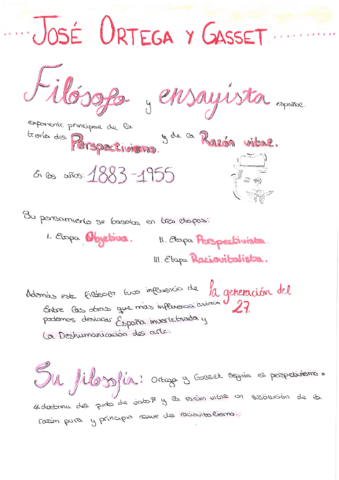 JOSÉ ORTEGA Y GASSET
Filósofo y ensayista español
exponente principal de la
teoría del Perspectivismo y de la Razón vital.
En los años 1883-1955
Su pensamiento se basaba en tres etapas:
I. Etapa Objetiva. II. Etapa Perspectivista
III. Etapa Raciovitalista.
Además este filósofo tuvo influencia de la generación del 27.
Entre las obras que más influencia
podemos destacar España invertebrada y
La Deshumanización del arte.
Su filosofía: Ortega y Gasset seguía el perspectivismo o
"doctrina del punto de vista" y la razón vital en sustitución de la
razón pura y principio clave del raciovitalismo.